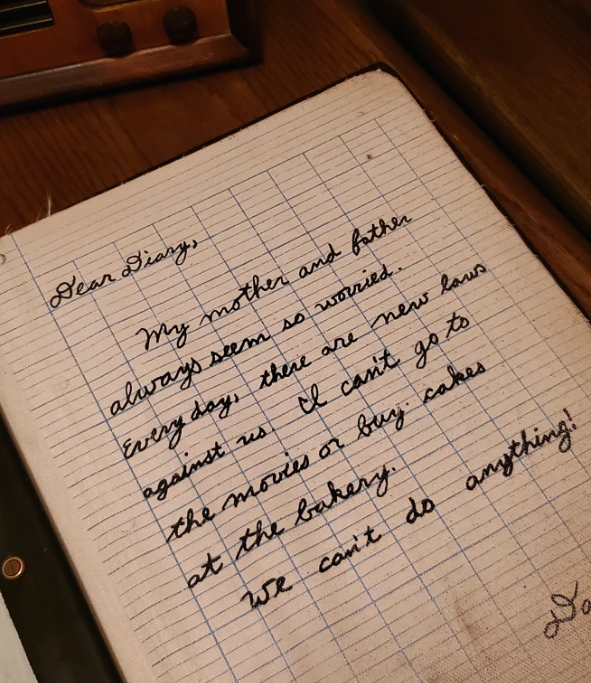 Dear Diary,
My mother and father
always seem so worried.
Every day, there are new laws
against us. I can't go to
the movies or buy cakes
at the bakery.
We can't do anything!